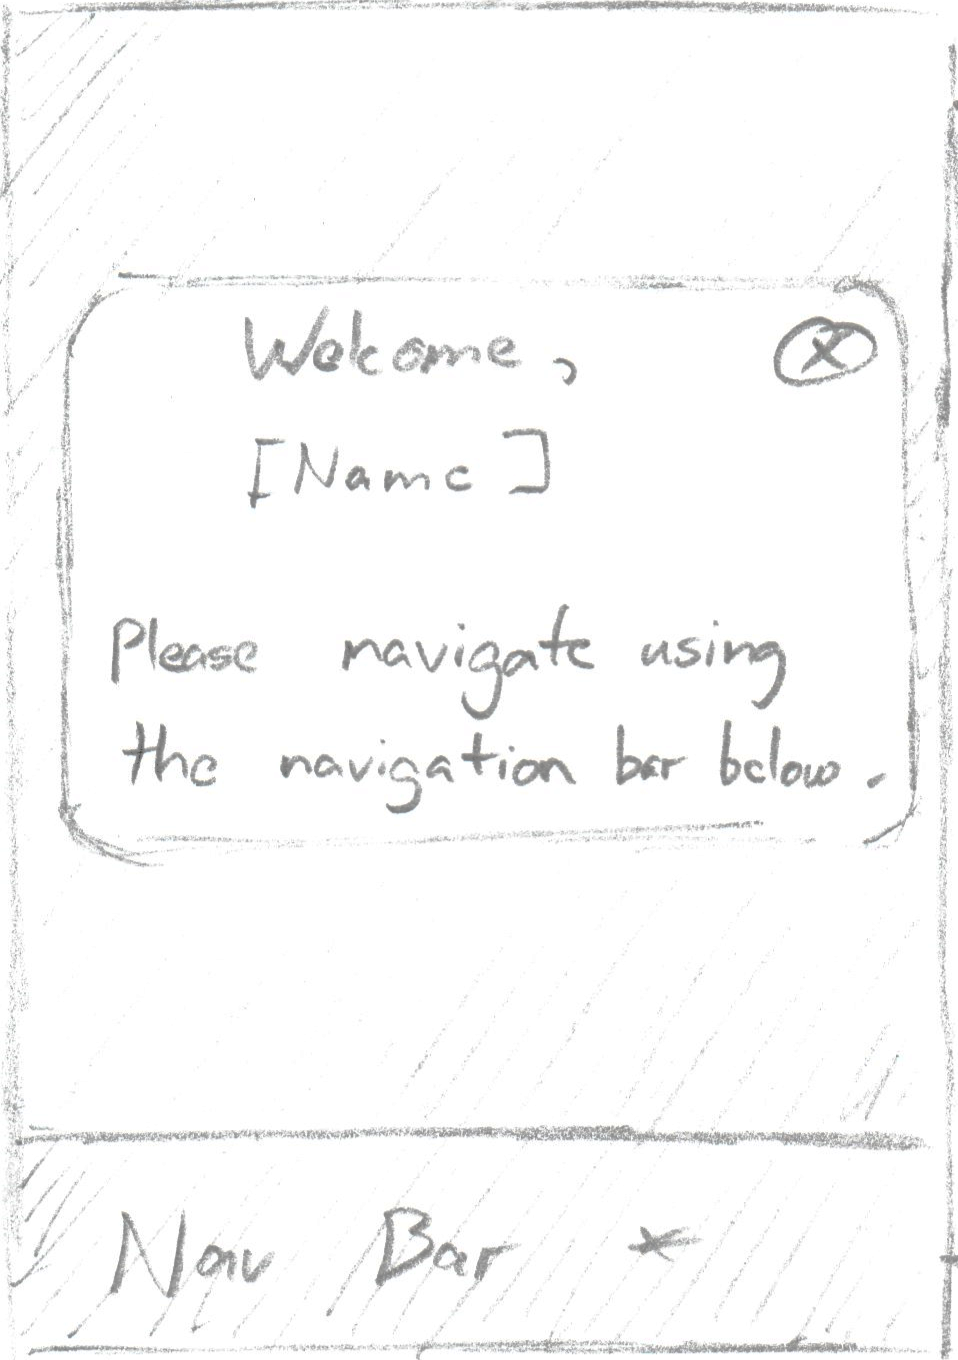 Welcome,
[Name]
Please navigate using
the navigation bar below.
Nav Bar *